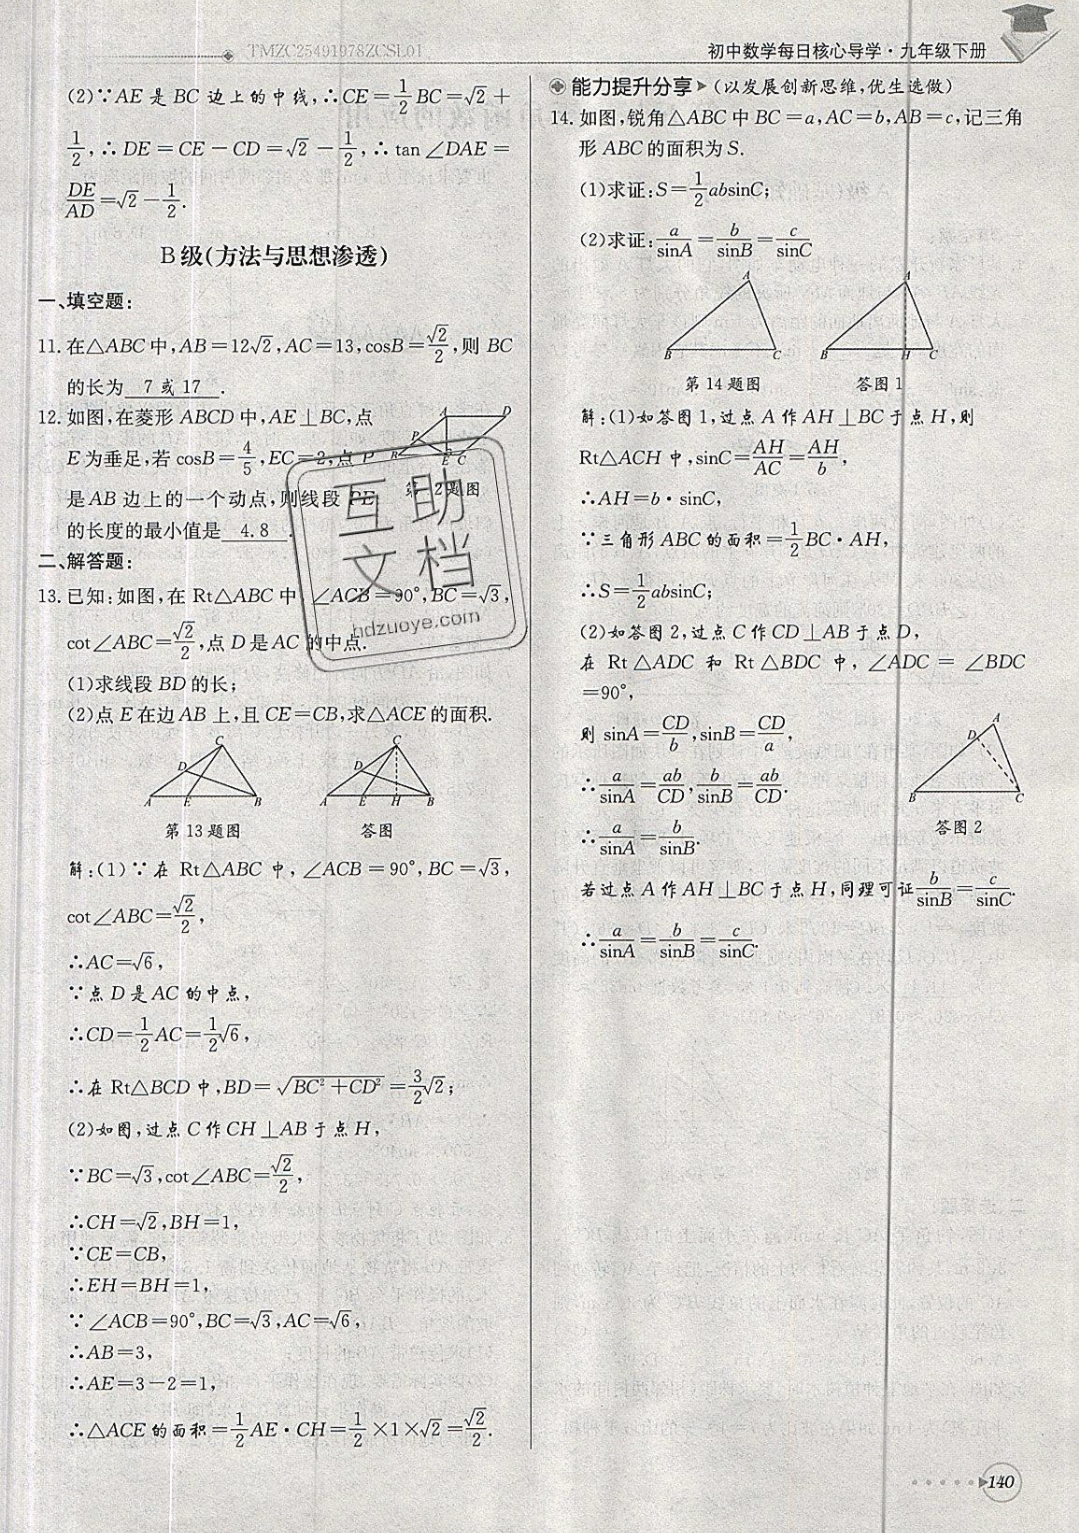 TMZC25491978ZCSL01
初中数学每日核心导学·九年级下册
(2)∵AE是BC边上的中线,∴CE=1/2BC=√2+
1/2,∴DE=CE-CD=√2-1/2,∴tan∠DAE=
DE/AD=√2-1/2.
B级(方法与思想渗透)
一、填空题:
11.在△ABC中,AB=12√2,AC=13,cosB=√2/2,则BC
的长为 7或17 .
12.如图,在菱形ABCD中,AE⊥BC,点
E为垂足,若cosB=4/5,EC=2,点P
是AB边上的一个动点,则线段PE
的长度的最小值是 4.8 .
A D
P
B E C
第12题图
二、解答题:
13.已知:如图,在Rt△ABC中,∠ACB=90°,BC=√3,
cot∠ABC=√2/2,点D是AC的中点.
(1)求线段BD的长;
(2)点E在边AB上,且CE=CB,求△ACE的面积.
C
D
A E B
第13题图
C
D
A E H B
答图
解:(1)∵在Rt△ABC中,∠ACB=90°,BC=√3,
cot∠ABC=√2/2,
∴AC=√6,
∵点D是AC的中点,
∴CD=1/2AC=1/2√6,
∴在Rt△BCD中,BD=√(BC²+CD²)=3/2√2;
(2)如图,过点C作CH⊥AB于点H,
∵BC=√3,cot∠ABC=√2/2,
∴CH=√2,BH=1,
∵CE=CB,
∴EH=BH=1,
∵∠ACB=90°,BC=√3,AC=√6,
∴AB=3,
∴AE=3-2=1,
∴△ACE的面积=1/2AE·CH=1/2×1×√2=√2/2.
能力提升分享(以发展创新思维,优生选做)
14.如图,锐角△ABC中BC=a,AC=b,AB=c,记三角
形ABC的面积为S.
(1)求证:S=1/2absinC;
(2)求证:a/sinA=b/sinB=c/sinC
A
B C
第14题图
A
B H C
答图1
解:(1)如答图1,过点A作AH⊥BC于点H,则
Rt△ACH中,sinC=AH/AC=AH/b,
∴AH=b·sinC,
∵三角形ABC的面积=1/2BC·AH,
∴S=1/2absinC;
(2)如答图2,过点C作CD⊥AB于点D,
在Rt△ADC和Rt△BDC中,∠ADC=∠BDC
=90°,
则sinA=CD/b,sinB=CD/a,
∴a/sinA=ab/CD,b/sinB=ab/CD.
∴a/sinA=b/sinB.
A
D
B C
答图2
若过点A作AH⊥BC于点H,同理可证b/sinB=c/sinC.
∴a/sinA=b/sinB=c/sinC.
互助
文档
hdzuoye.com
140